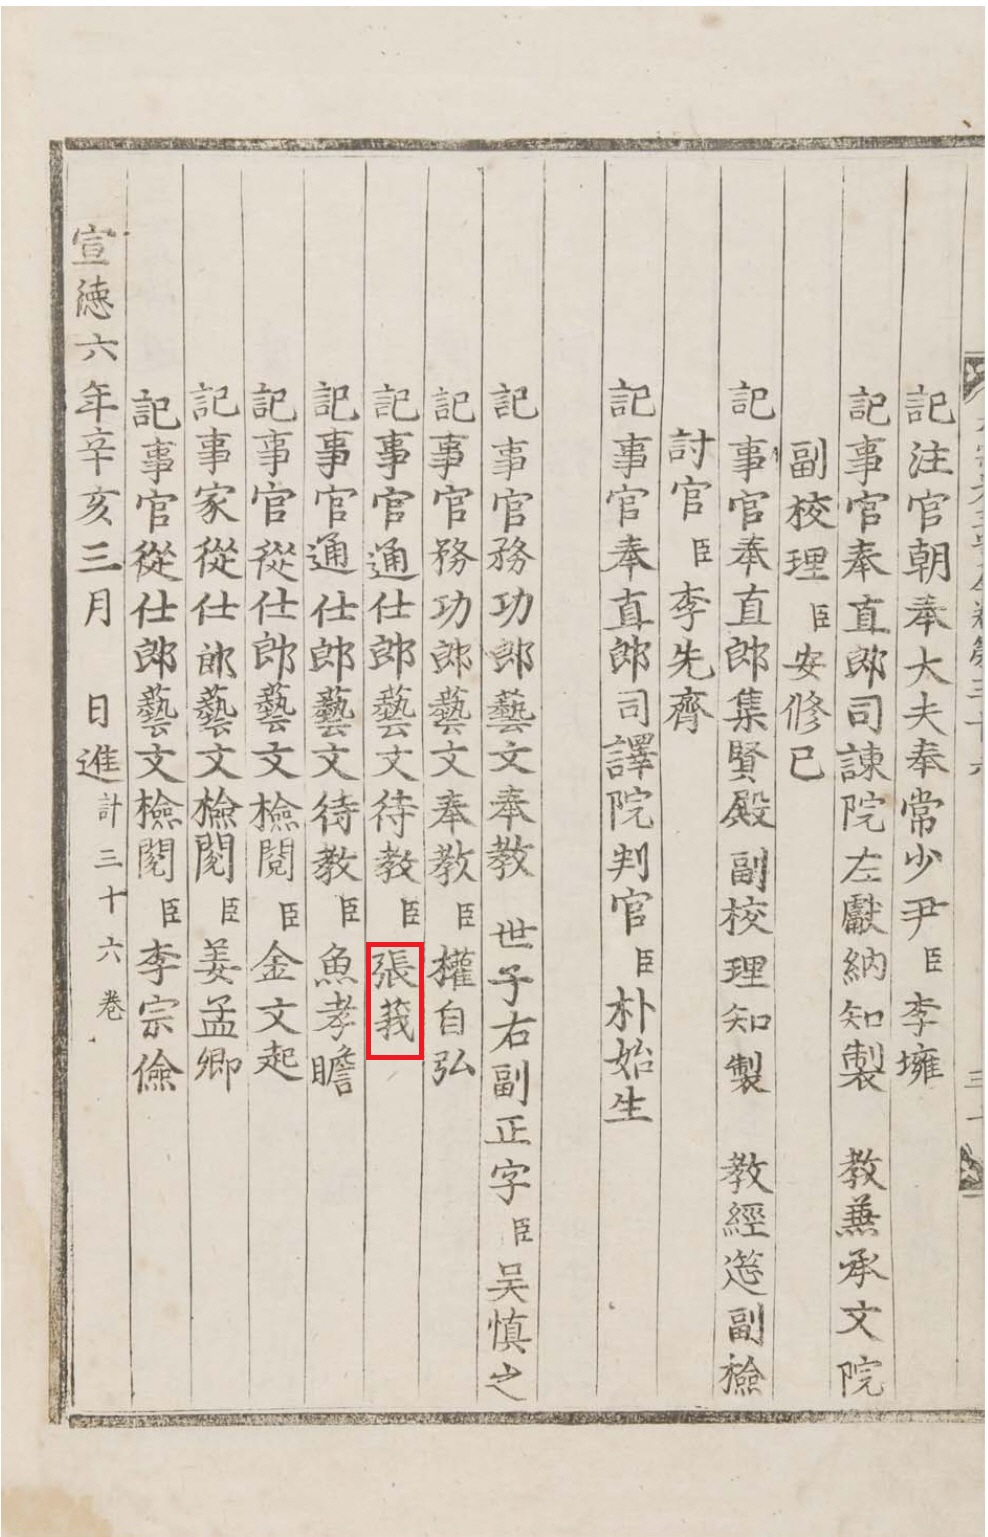 記注官朝奉大夫奉常少尹臣李壅
記事官奉直郎司諫院左獻納知製 教兼承文院
副校理臣安修己
記事官奉直郎集賢殿副校理知製 教經筵副檢
討官臣李先齊
記事官奉直郎司譯院判官臣朴始生
記事官務功郎藝文奉教 世子右副正字臣吴慎之
記事官務功郎藝文奉教臣權自弘
記事官通仕郎藝文待教臣張莪
記事官通仕郎藝文待教臣魚孝瞻
記事官從仕郎藝文檢閱臣金文起
記事家從仕郎藝文檢閱臣姜孟卿
記事官從仕郎藝文檢閱臣李宗儉
宣德六年辛亥三月 日進計三十六卷